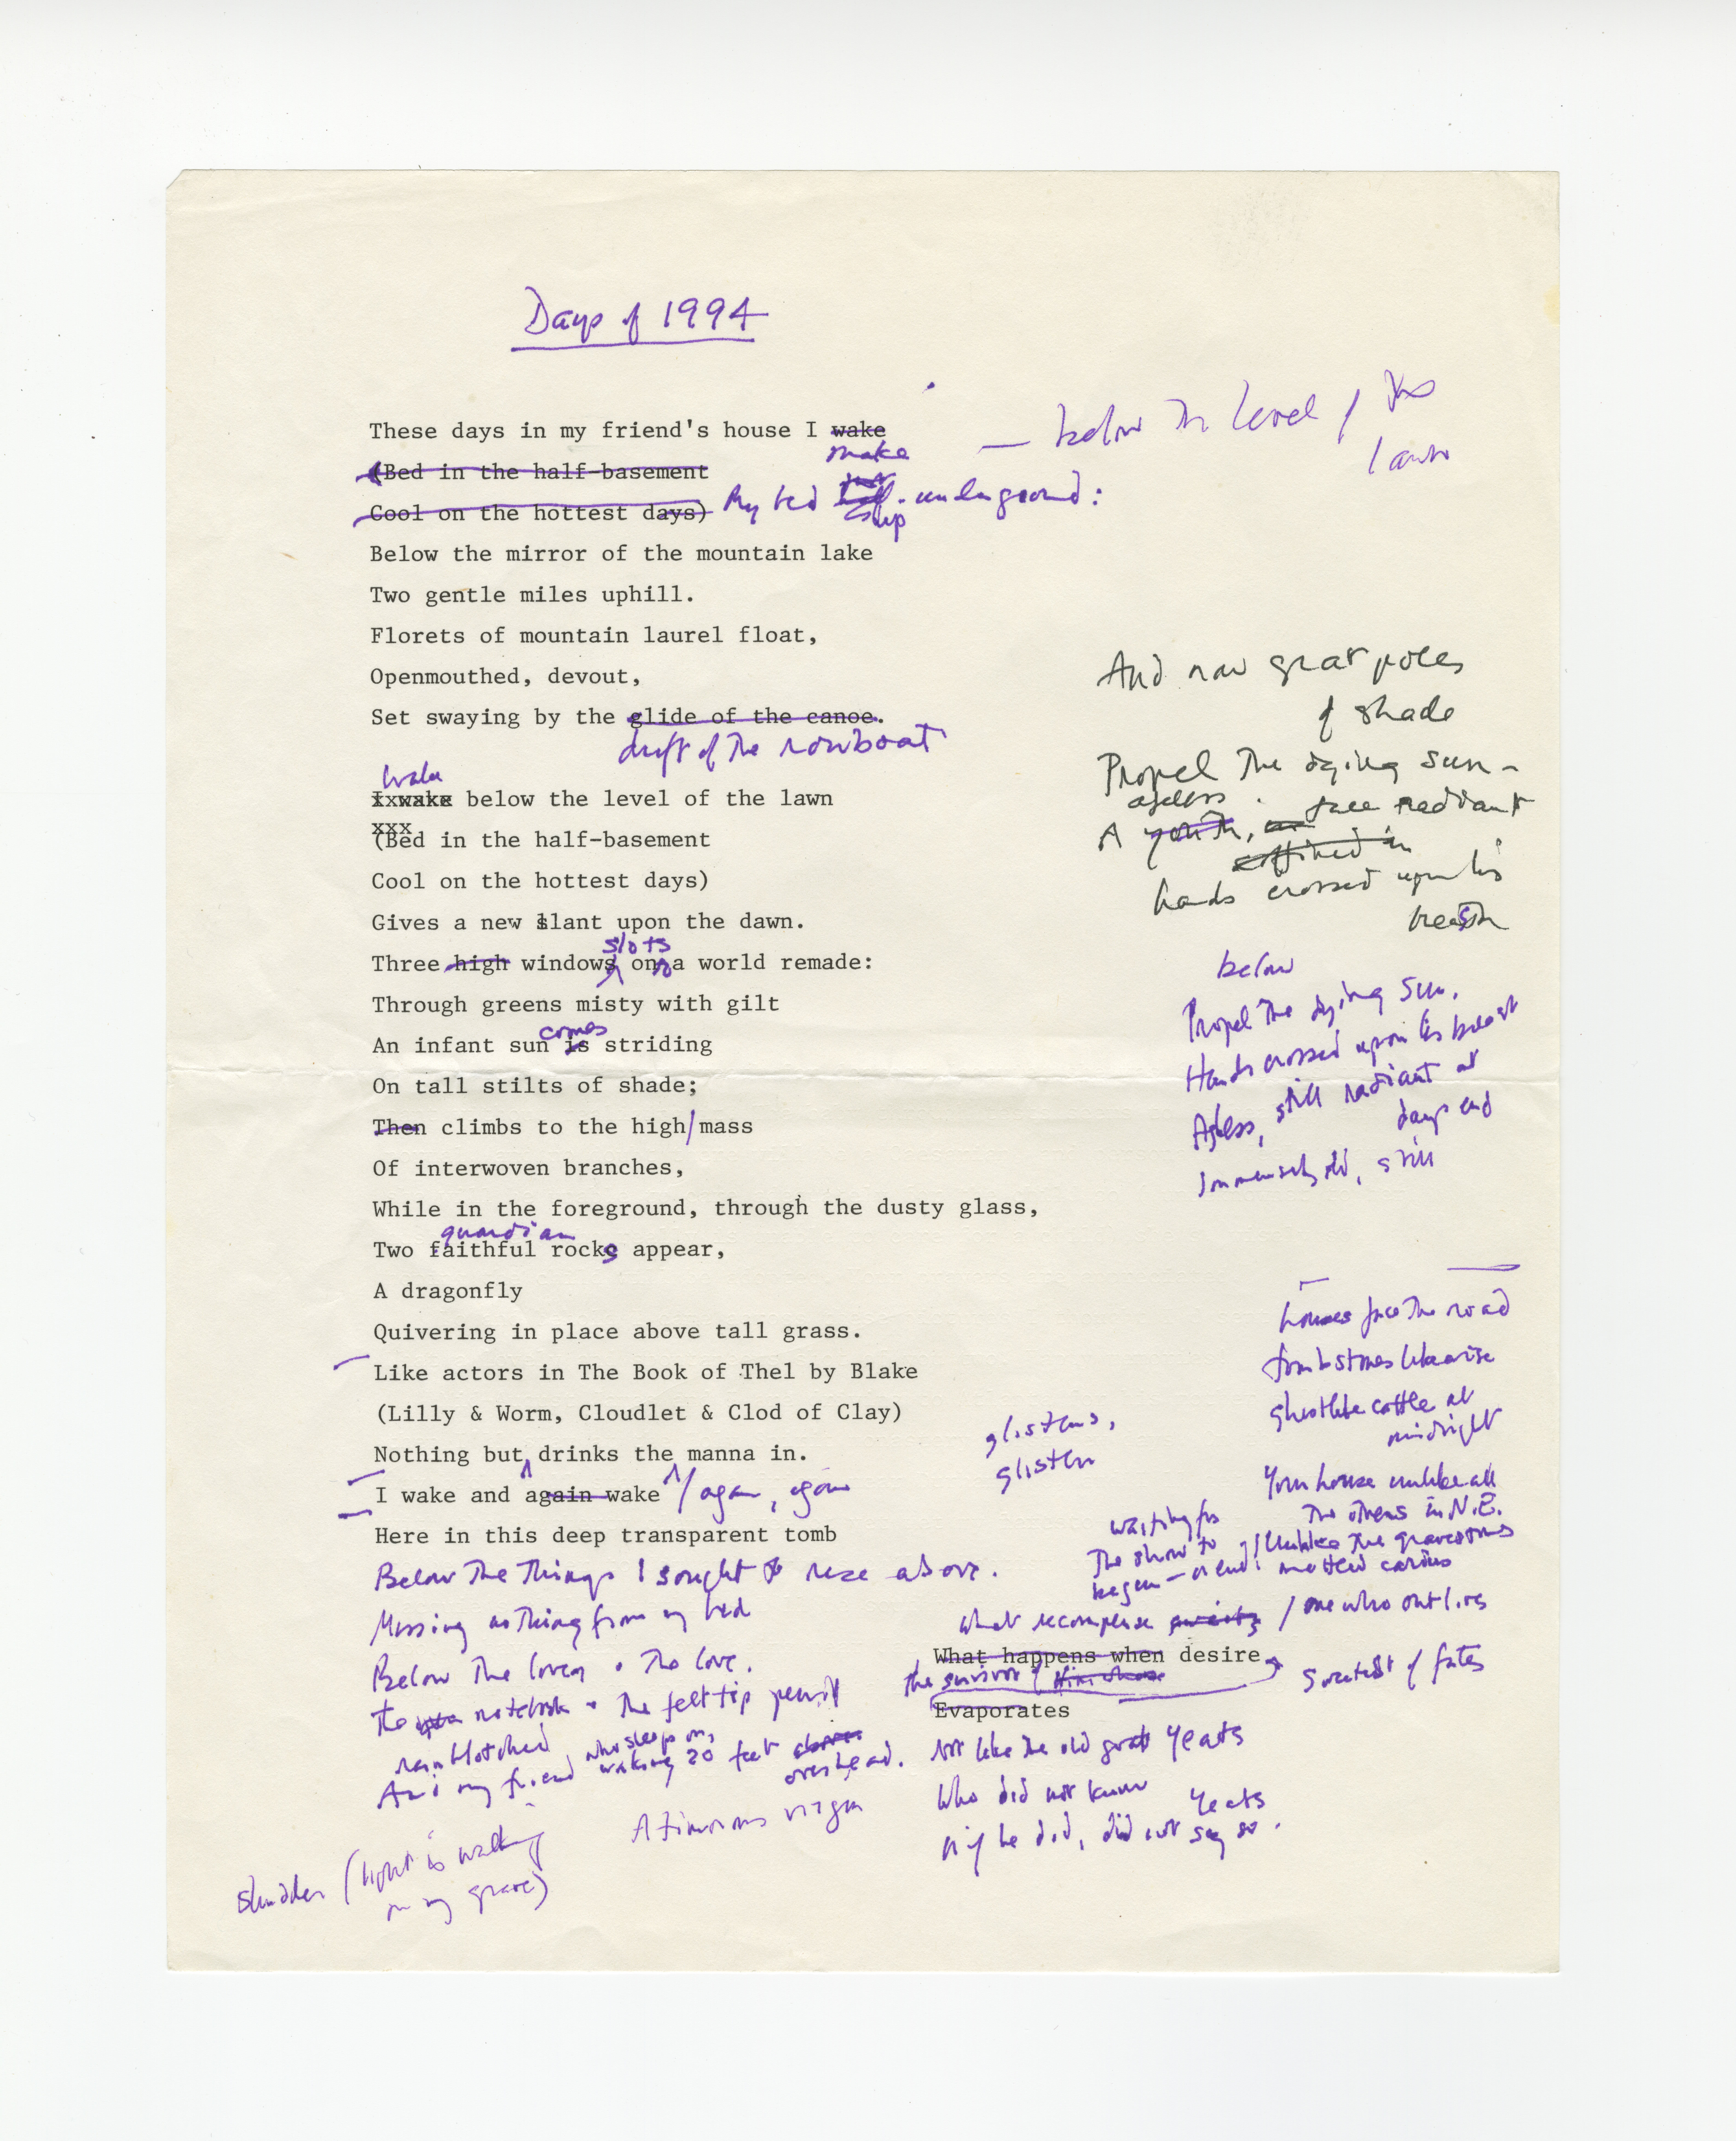 Days of 1994
These days in my friend's house I wake
make
— below the level / the
lawn
(Bed in the half-basement
Cool on the hottest days) My bed half-underground:
Below the mirror of the mountain lake
Two gentle miles uphill.
Florets of mountain laurel float,
Openmouthed, devout,
Set swaying by the glide of the canoe.
drift of the rowboat
Wake
I wake below the level of the lawn
xxx
(Bed in the half-basement
Cool on the hottest days)
Gives a new slant upon the dawn.
slots
Three high windows on a world remade:
Through greens misty with gilt
comes
An infant sun is striding
On tall stilts of shade;
Then climbs to the high/mass
Of interwoven branches,
While in the foreground, through the dusty glass,
guardian
Two faithful rocks appear,
A dragonfly
Quivering in place above tall grass.
Like actors in The Book of Thel by Blake
(Lilly & Worm, Cloudlet & Clod of Clay)
Nothing but drinks the manna in.
I wake and again wake / again, again
Here in this deep transparent tomb
Below the things I sought to rise above.
Missing nothing from my bed
Below the lover • the love.
The notebook • the felt tip pencil
rainblotched
And my friend, who sleeps on,
waking 20 feet above
overhead.
A timorous virgin
Shudder (light is walking
on my grave)
And now great poles
of shade
Propel the dying sun –
ageless
A youth, face radiant
coffined in
hands crossed upon his
breast
below
Propel the dying sun.
Hands crossed upon his breast
Ageless, still radiant at
days end
Immensely old, still
houses face the road
tombstones likewise
ghostlike cattle at
midnight
glistens,
glisten
Your house unlike all
the others in N.E.
Unlike the gravestones
waiting for
the show to
begin – or end!
what recompense / one who outlives
What happens when desire
the survivor of
sweetest of fates
Evaporates
Not like the old great Yeats
Who did not know
Yeats
or if he did, did not say so.